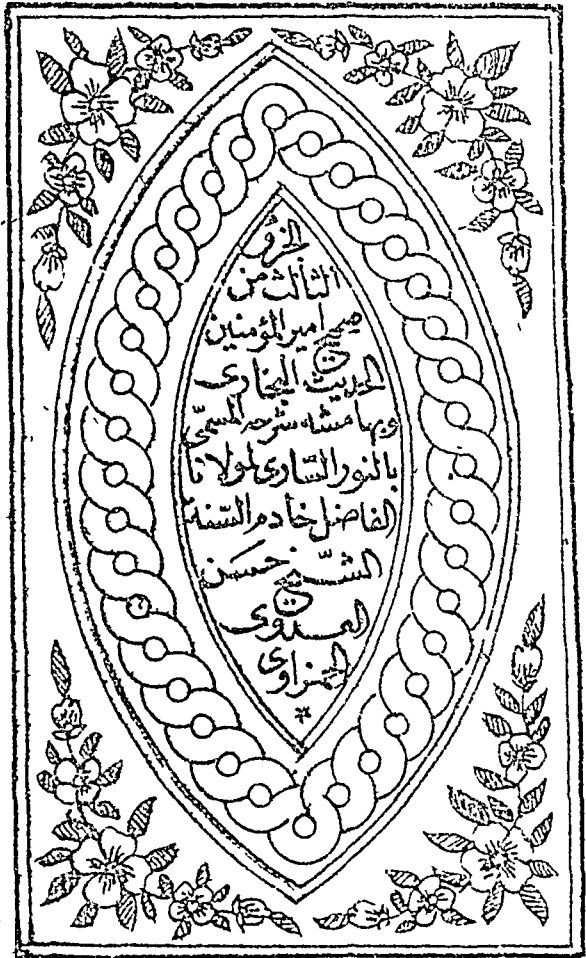 الجزؤ
الثالث من
صحيح امير المؤمنين
في
الحديث البخارى
وبهامشه شرحه المسمى
بالنور السارى لمولانا
الفاضل خادم السنة
الشيخ حسن
العدوى
الحمزاوى